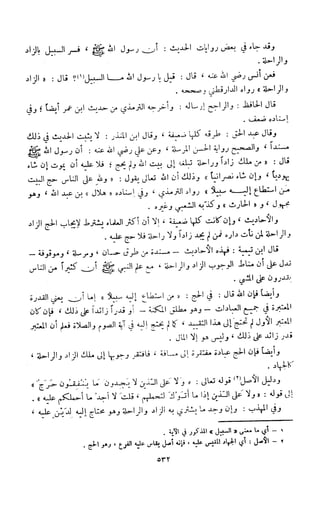 وقد جاء في بعض روايات الحديث : أن رسول الله ﷺ ، فسر السبيل بالزاد
والراحلة .
فعن أنس رضي الله عنه ، قال : قيل يا رسول الله مـا السبيل(١) ؟ قال : « الزاد
والراحلة » رواه الدارقطني وصححه .
قال الحافظ : والراجح إرساله : وأخرجه الترمذي من حديث ابن عمر أيضاً ؛ وفي
إسناده ضعف .
وقال عبد الحق : طرقه كلها ضعيفة ، وقال ابن المنذر : لا يثبت الحديث في ذلك
مسنداً ، والصحيح رواية الحسن المرسلة ، وعن علي رضي الله عنه : أن رسول الله ﷺ
قال : « من ملك زاداً وراحلة تبلغه إلى بيت الله ولم يحج ؛ فلا عليه أن يموت إن شاء
يهودياً ، وإن شاء نصرانياً » وذلك أن الله تعالى يقول : « ولله على الناس حج البيت
من استطاع إليـــه سبيلا » رواه الترمذي ، وفي إسناده « هلال » بن عبد الله ، وهو
مجهول ، و « الحارث » وكذبه الشعبي وغيره .
والأحاديث ، وإن كانت كلها ضعيفة ، إلا أن أكثر العلماء يشترط لإيجاب الحج الزاد
والراحلة لمن نأت داره فمن لم يجد زاداً ولا راحلة فلا حج عليه .
قال ابن تيمية : فهذه الأحاديث – مسندة من طرق حسان ، ومرسلة ، وموقوفة –
تدل على أن مناط الوجوب الزاد والراحلة ، مع علم النبي ﷺ أن كثيراً من الناس
يقدرون على المشي .
وأيضاً فإن الله قال : في الحج : « من استطاع إليه سبيلا » إما أن يعني القدرة
المعتبرة في جميع العبادات – وهو مطلق المكنة – أو قدراً زائداً على ذلك ، فإن كان
المعتبر الأول لم تحتج إلى هذا التقييد ، كما لم يحتج إليه في آية الصوم والصلاة فعلم أن المعتبر
قدر زائد على ذلك ، وليس هو إلا المال .
وأيضاً فإن الحج عبادة مفتقرة إلى مسافة ، فافتقر وجوبها إلى ملك الزاد والراحلة ،
كالجهاد .
ودليل الأصل(٢) قوله تعالى : « ولا على الذين لا يجدون ما ينفقون حرج »
إلى قوله : « ولا على الذين إذا ما أتوك لتحملهم ، قلت لا أجد ما أحملكم عليه » .
وفي المهذب : وإن وجد ما يشتري به الزاد والراحلة وهو محتاج إليه لدين عليه ،
١ – أي ما معنى « السبيل » المذكور في الآية .
٢ – الأصل : أي الجهاد المقيس عليه ، فإنه أصل يقاس عليه الفرع ، وهو الحج .
٥٣٢